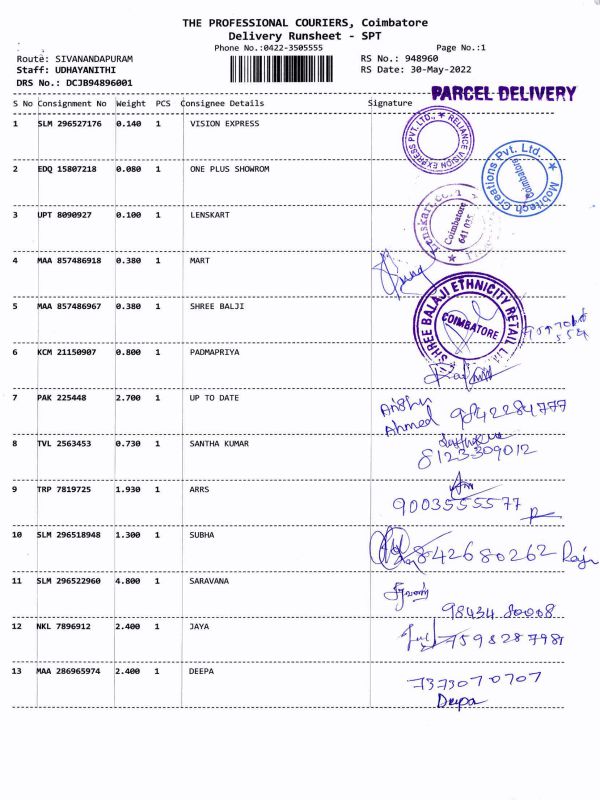 THE PROFESSIONAL COURIERS, Coimbatore
Delivery Runsheet - SPT
Phone No.:0422-3505555 Page No.:1
Route: SIVANANDAPURAM RS No.: 948960
Staff: UDHAYANITHI RS Date: 30-May-2022
DRS No.: DCJB94896001
PARCEL DELIVERY
S No Consignment No Weight PCS Consignee Details Signature
1 SLM 296527176 0.140 1 VISION EXPRESS
RELIANCE VISION EXPRESS PVT. LTD., ★
Mobitech Creations Pvt. Ltd. ★
Coimbatore
2 EDQ 15807218 0.080 1 ONE PLUS SHOWROM
3 UPT 8090927 0.100 1 LENSKART
Lenskart.com
Coimbatore
641 035
4 MAA 857486918 0.380 1 MART
5 MAA 857486967 0.380 1 SHREE BALJI
SHREE BALAJI ETHNICITY RETAIL Ltd.
COIMBATORE
6 KCM 21150907 0.800 1 PADMAPRIYA
7 PAK 225448 2.700 1 UP TO DATE
Ahmed 9842284777
8 TVL 2563453 0.730 1 SANTHA KUMAR
8123309012
9 TRP 7819725 1.930 1 ARRS
9003555577
10 SLM 296518948 1.300 1 SUBHA
8842680262 Raja
11 SLM 296522960 4.800 1 SARAVANA
98434 80008
12 NKL 7896912 2.400 1 JAYA
7598287981
13 MAA 286965974 2.400 1 DEEPA
7373070707
Deepa